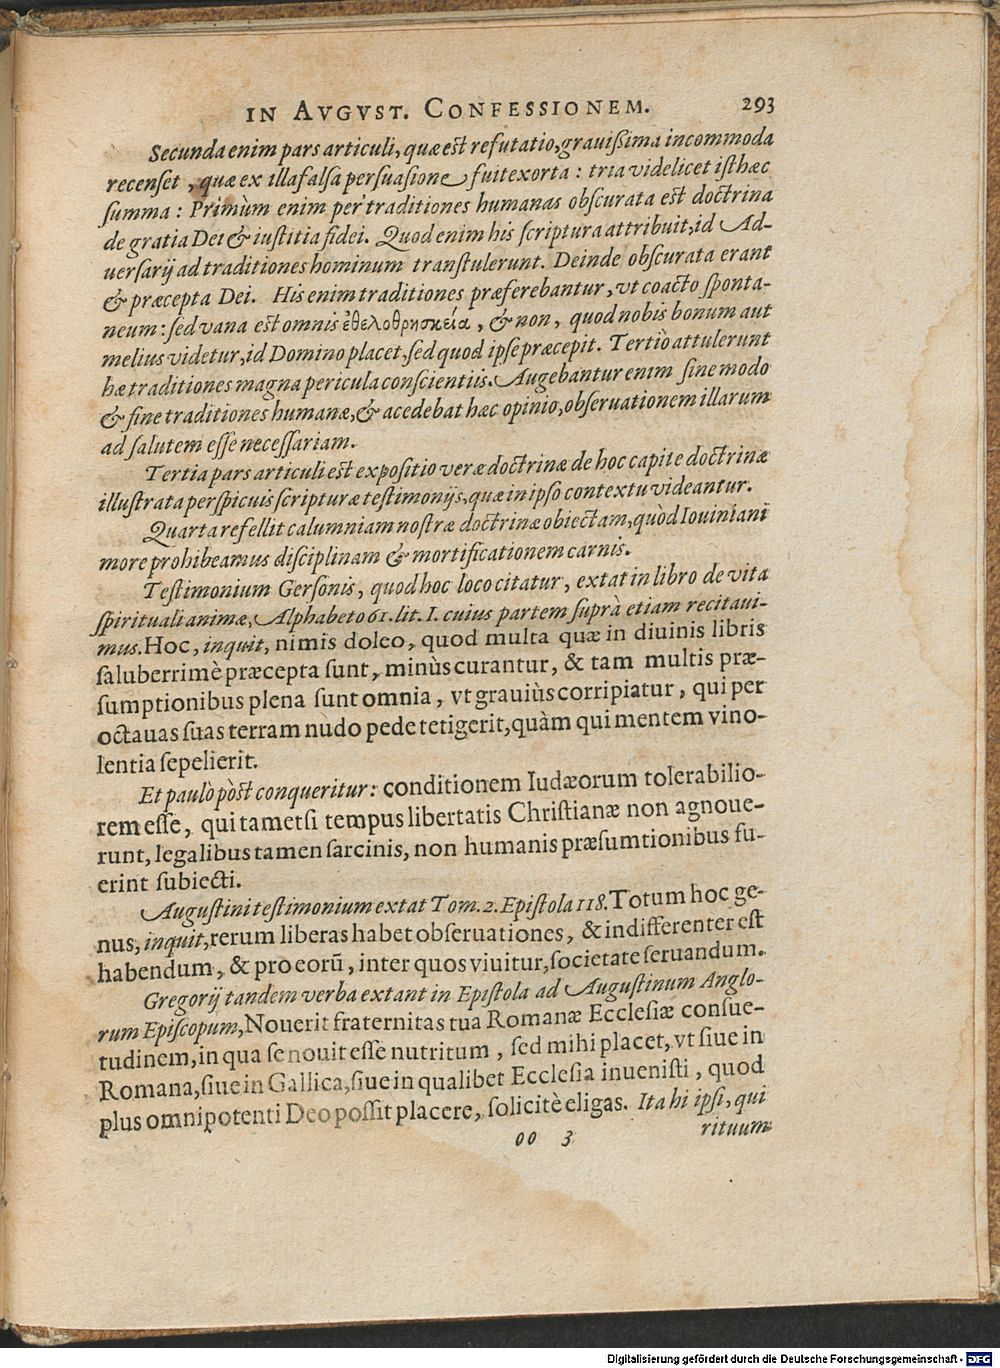 IN AVGVST. CONFESSIONEM. 293
Secunda enim pars articuli, quæ est refutatio, grauißima incommoda
recenset, quæ ex illa falsa persuasione fuit exorta: tria videlicet isthæc
summa: Primùm enim per traditiones humanas obscurata est doctrina
de gratia Dei & iustitia fidei. Quod enim his scriptura attribuit, id Ad-
uersarij ad traditiones hominum transtulerunt. Deinde obscurata erant
& præcepta Dei. His enim traditiones præferebantur, vt coacto sponta-
neum: sed vana est omnis ἐθελοθρησκεία, & non, quod nobis bonum aut
melius videtur, id Domino placet, sed quod ipse præcepit. Tertiò attulerunt
hæ traditiones magna pericula conscientiis. Augebantur enim sine modo
& fine traditiones humanæ, & acedebat hæc opinio, obseruationem illarum
ad salutem esse necessariam.
Tertia pars articuli est expositio veræ doctrinæ de hoc capite doctrinæ
illustrata perspicuis scripturæ testimonijs, quæ in ipso contextu videantur.
Quarta refellit calumniam nostræ doctrinæ obiectam, quòd Iouiniani
more prohibeamus disciplinam & mortificationem carnis.
Testimonium Gersonis, quod hoc loco citatur, extat in libro de vita
spirituali animæ, Alphabeto 61. lit. I. cuius partem suprà etiam recitaui-
mus. Hoc, inquit, nimis doleo, quod multa quæ in diuinis libris
saluberrimè præcepta sunt, minùs curantur, & tam multis præ-
sumptionibus plena sunt omnia, vt grauiùs corripiatur, qui per
octauas suas terram nudo pede tetigerit, quàm qui mentem vino-
lentia sepelierit.
Et paulò pòst conqueritur: conditionem Iudæorum tolerabilio-
rem esse, qui tametsi tempus libertatis Christianæ non agnoue-
runt, legalibus tamen sarcinis, non humanis præsumtionibus fu-
erint subiecti.
Augustini testimonium extat Tom. 2. Epistola 118. Totum hoc ge-
nus, inquit, rerum liberas habet obseruationes, & indifferenter est
habendum, & pro eorū, inter quos viuitur, societate seruandum.
Gregorij tandem verba extant in Epistola ad Augustinum Anglo-
rum Episcopum, Nouerit fraternitas tua Romanæ Ecclesiæ consue-
tudinem, in qua se nouit esse nutritum, sed mihi placet, vt siue in
Romana, siue in Gallica, siue in qualibet Ecclesia inuenisti, quod
plus omnipotenti Deo possit placere, solicitè eligas. Ita hi ipsi, qui
oo 3 rituum
Digitalisierung gefördert durch die Deutsche Forschungsgemeinschaft - DFG